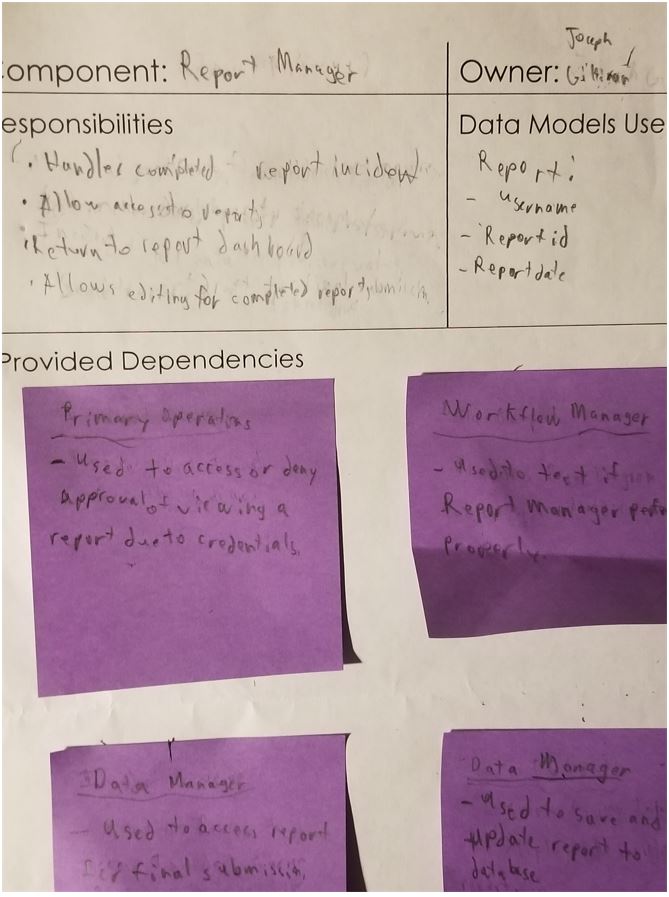 omponent: Report Manager
Owner: Joseph
esponsibilities
• Handles completed report incident
• Allow access to reports
• Return to report dashboard
• Allows editing for completed report
Data Models Use
Report:
- username
- Report id
- Report date
Provided Dependencies
Primary Operations
- Used to access or deny
approval of viewing a
report due to credentials.
Workflow Manager
- Used to test if
Report Manager perfo
properly.
Data Manager
- Used to access report
for final submission
Data Manager
- Used to save and
update report to
database